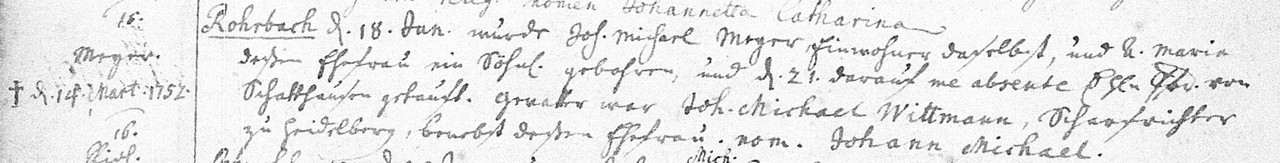 nomen Johannetta Catharina
16.
Rohrbach d. 18. Jun. wurde Joh. Michael Meyer, Einwohner daselbst, und A. Maria
Meyer.
deßen Ehefrau ein Söhnl. gebohren, und d. 21. darauf me absente von
† d. 14. Mart. 1752.
Schatthausen getauft. Gevatter war Joh. Michael Wittmann, Scharfrichter
zu Heidelberg, benebst deßen Ehefrau. nom. Johann Michael.
16.
Mich.